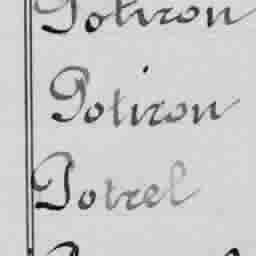 Potiron
Potiron
Potrel